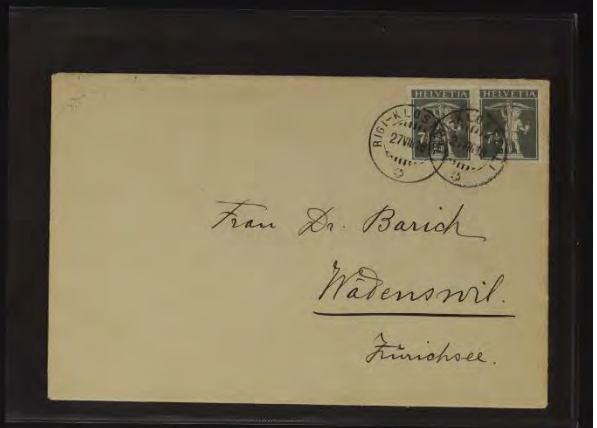 HELVETIA HELVETIA
RIGI-KLOS
27 VII
Frau Dr. Barich
Wädenswil.
Zürichsee.